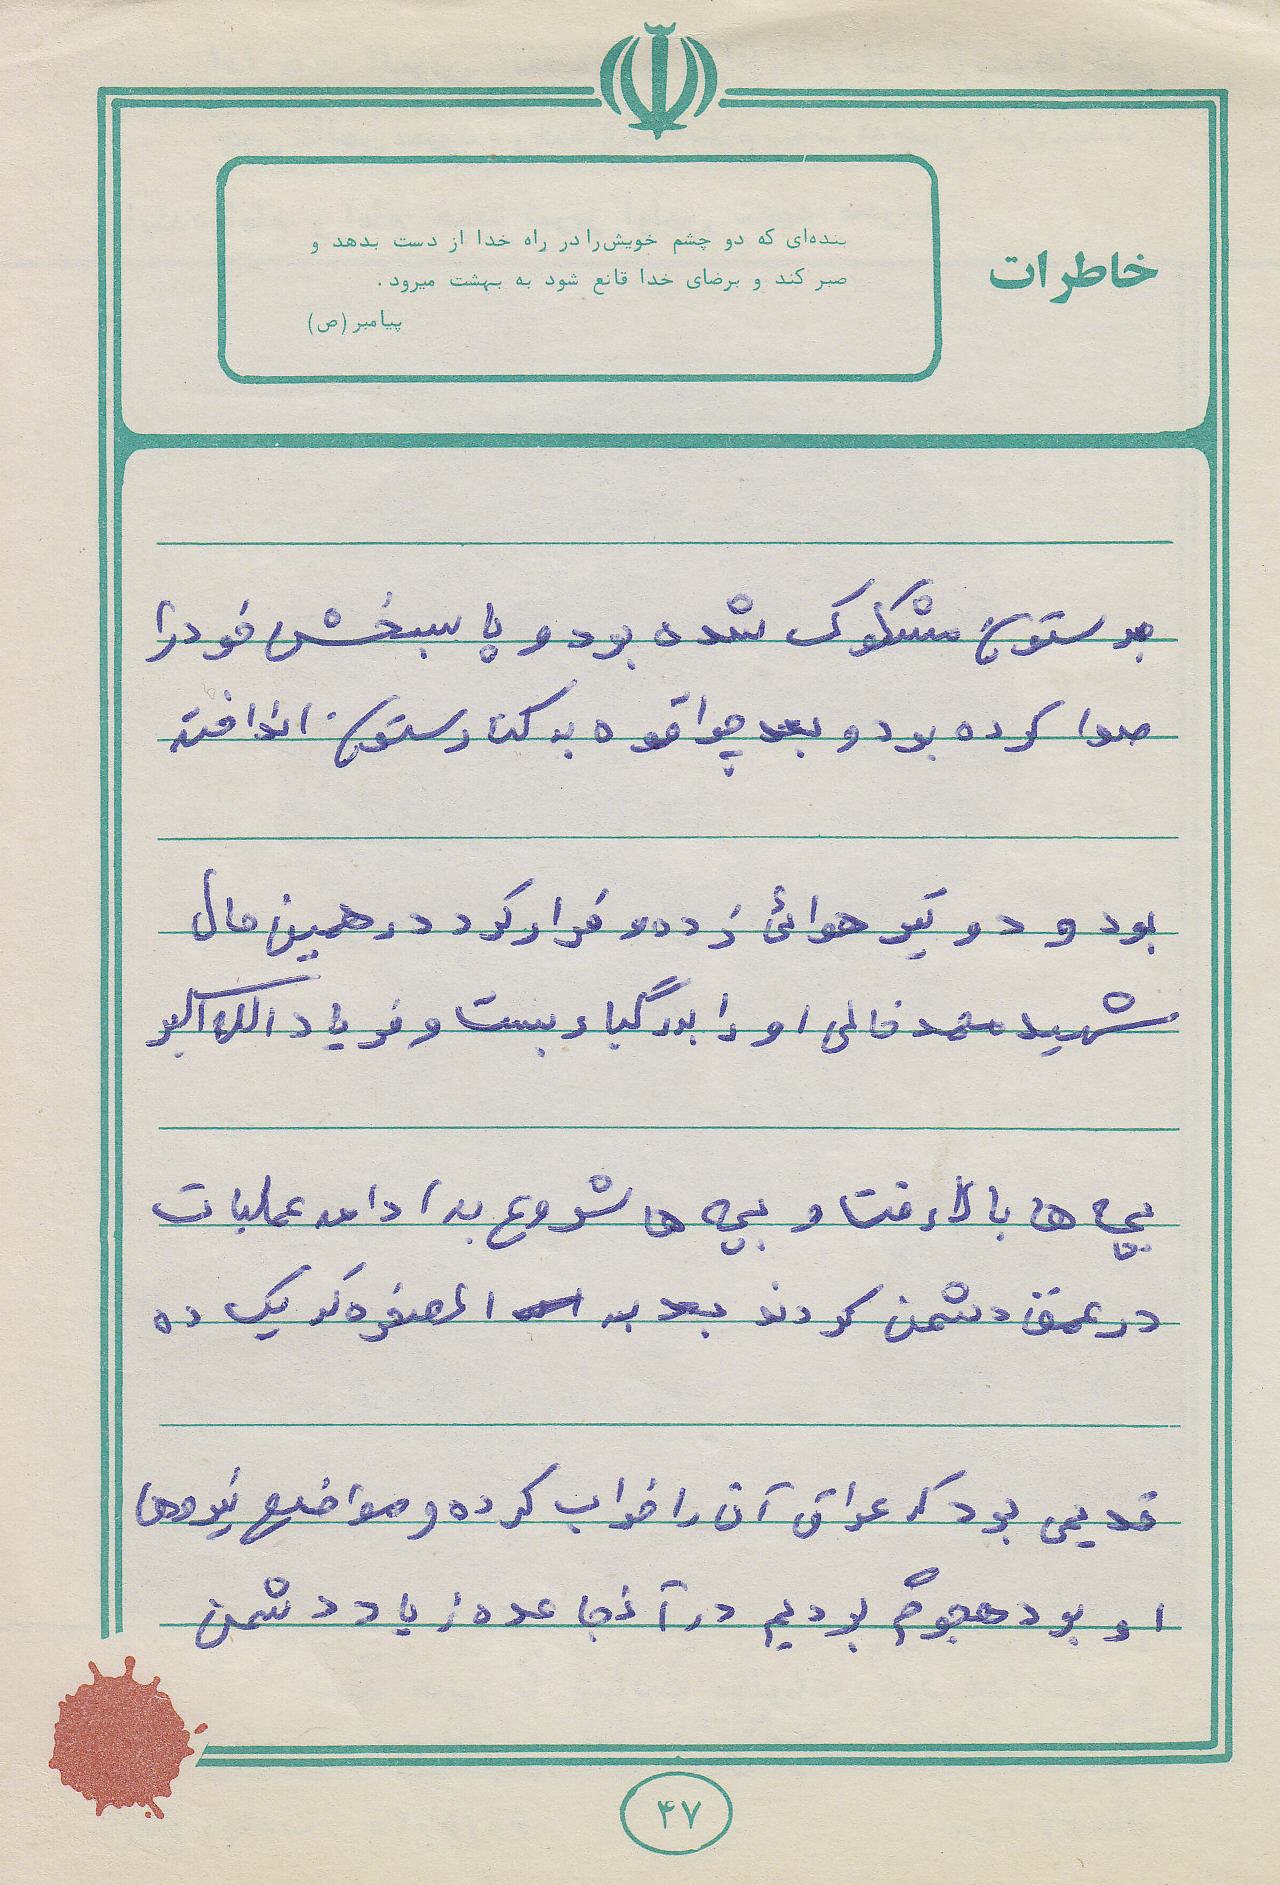 خاطرات
بنده‌ای که دو چشم خویش را در راه خدا از دست بدهد و
صبر کند و برضای خدا قانع شود به بهشت میرود.
پیامبر (ص)
به ستون مشکوک شده بود و پا سبخش خود را
صدا کرده بود و بعد چراقوه به کنار ستون انداخته
بود و دو تیر هوائی زده و فرار کرد در همین حال
شهید محمد خالی او را بدرگباء ببست و فریاد الله اکبر
بچه ها بالا رفتا و بچه ها شروع به ادامه عملیات
در عمق دشمن کردند بعد به المصفره که یک ده
قدیمی بود که عراق آن را خراب کرده و مواضع نیروها
او بود هجوم بردیم در آنجا عده زیاد دشمن
۴۷